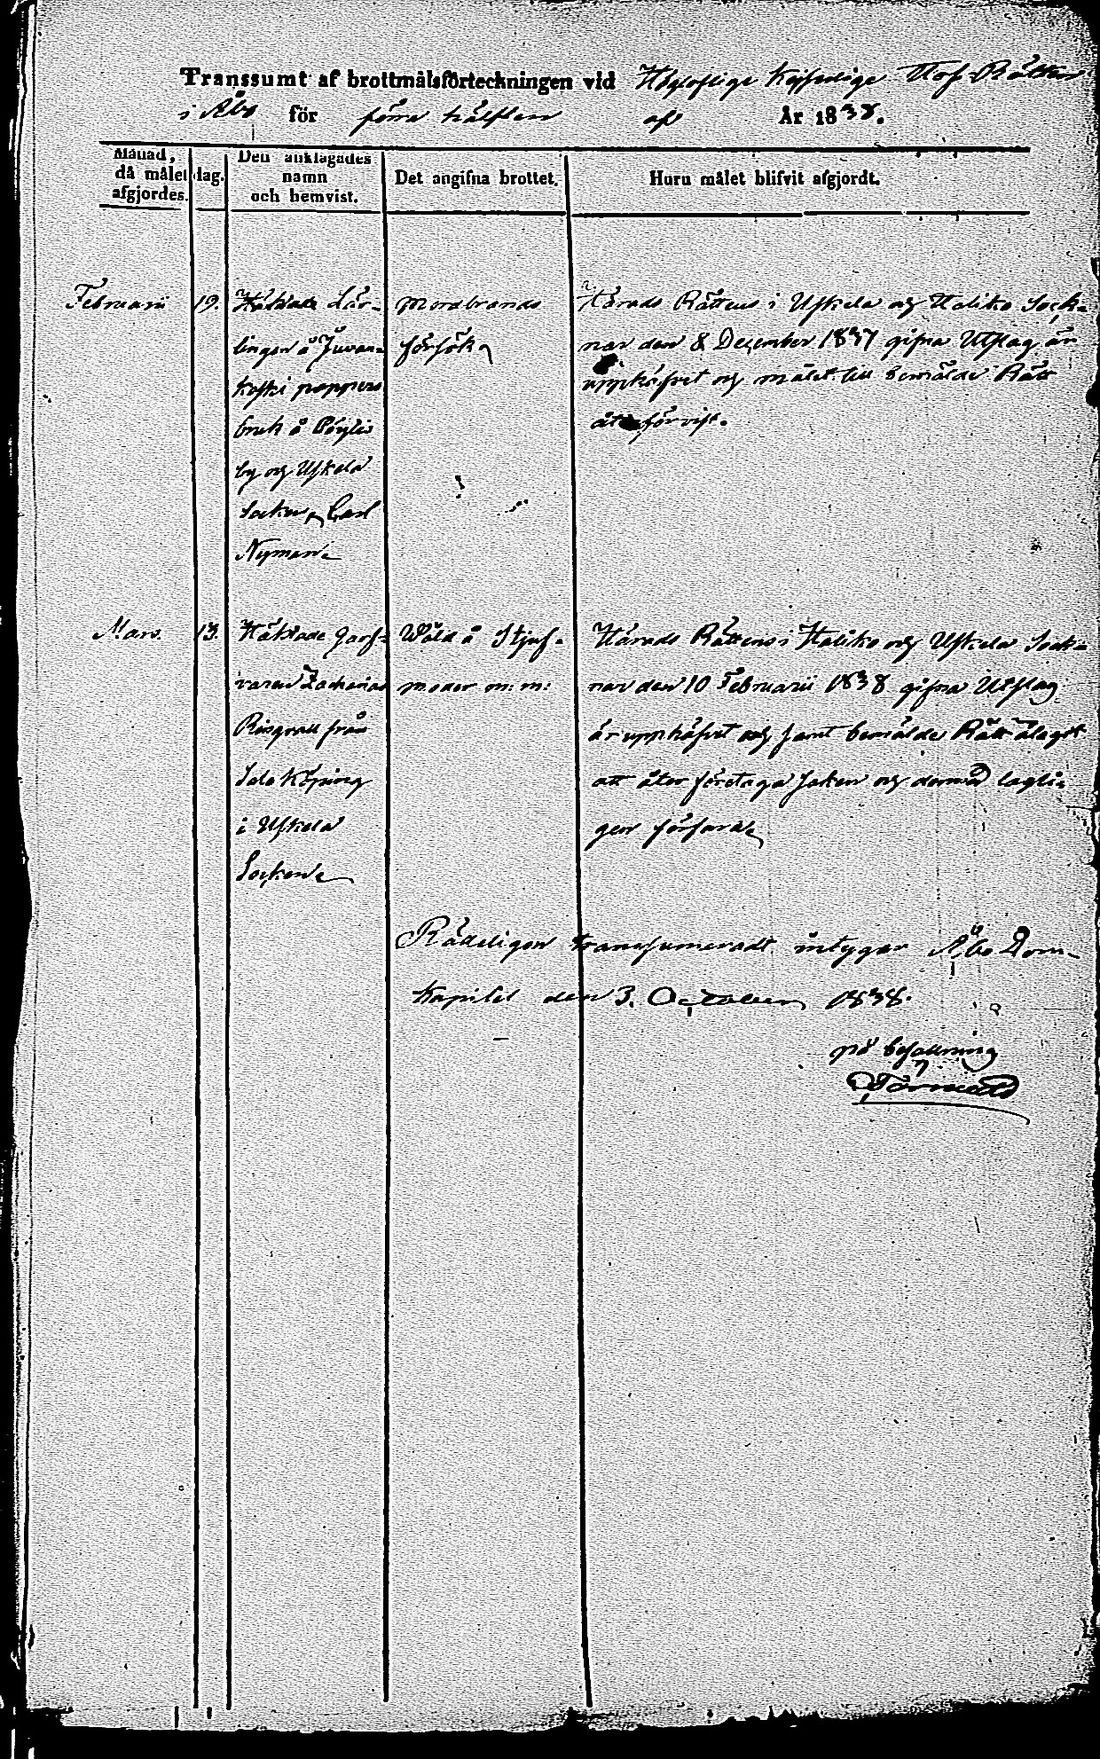 Transsumt af brottmålsförteckningen vid Högloflige Kejserlige Hof-Rätten
i Åbo för förra hälften af År 1838.
Månad, då målet afgjordes.
dag.
Den anklagades namn och hemvist.
Det angifna brottet.
Huru målet blifvit afgjordt.
Februarii 19. Häktade Lär- mordbrands Härads Rättens i Uskela och Haliko Sock-
lingen å Juvan- försök nar den 8 December 1837 gifna Utslag är
koski pappers upphäfvet och målet till bemälde Rätt
bruk å Pöylis återförvist.
by och Uskela
Socken, Carl
Nyman
Mars. 13. Häktade Garf- Våld å Stjuf- Härads Rättens i Haliko och Uskela Sock-
varen Zacharias moder m: m: nar den 10 Februarii 1838 gifna Utslag
Risgrall från är upphäfvet och samt bemälde Rätt ålagdt
Salo Köping att åter företaga saken och dermed lagli-
i Uskela gen förfara
Socken
Rädeligen transsumeradt intygar Åbo Dom-
Kapitel den 3. October 1838.
på befallning